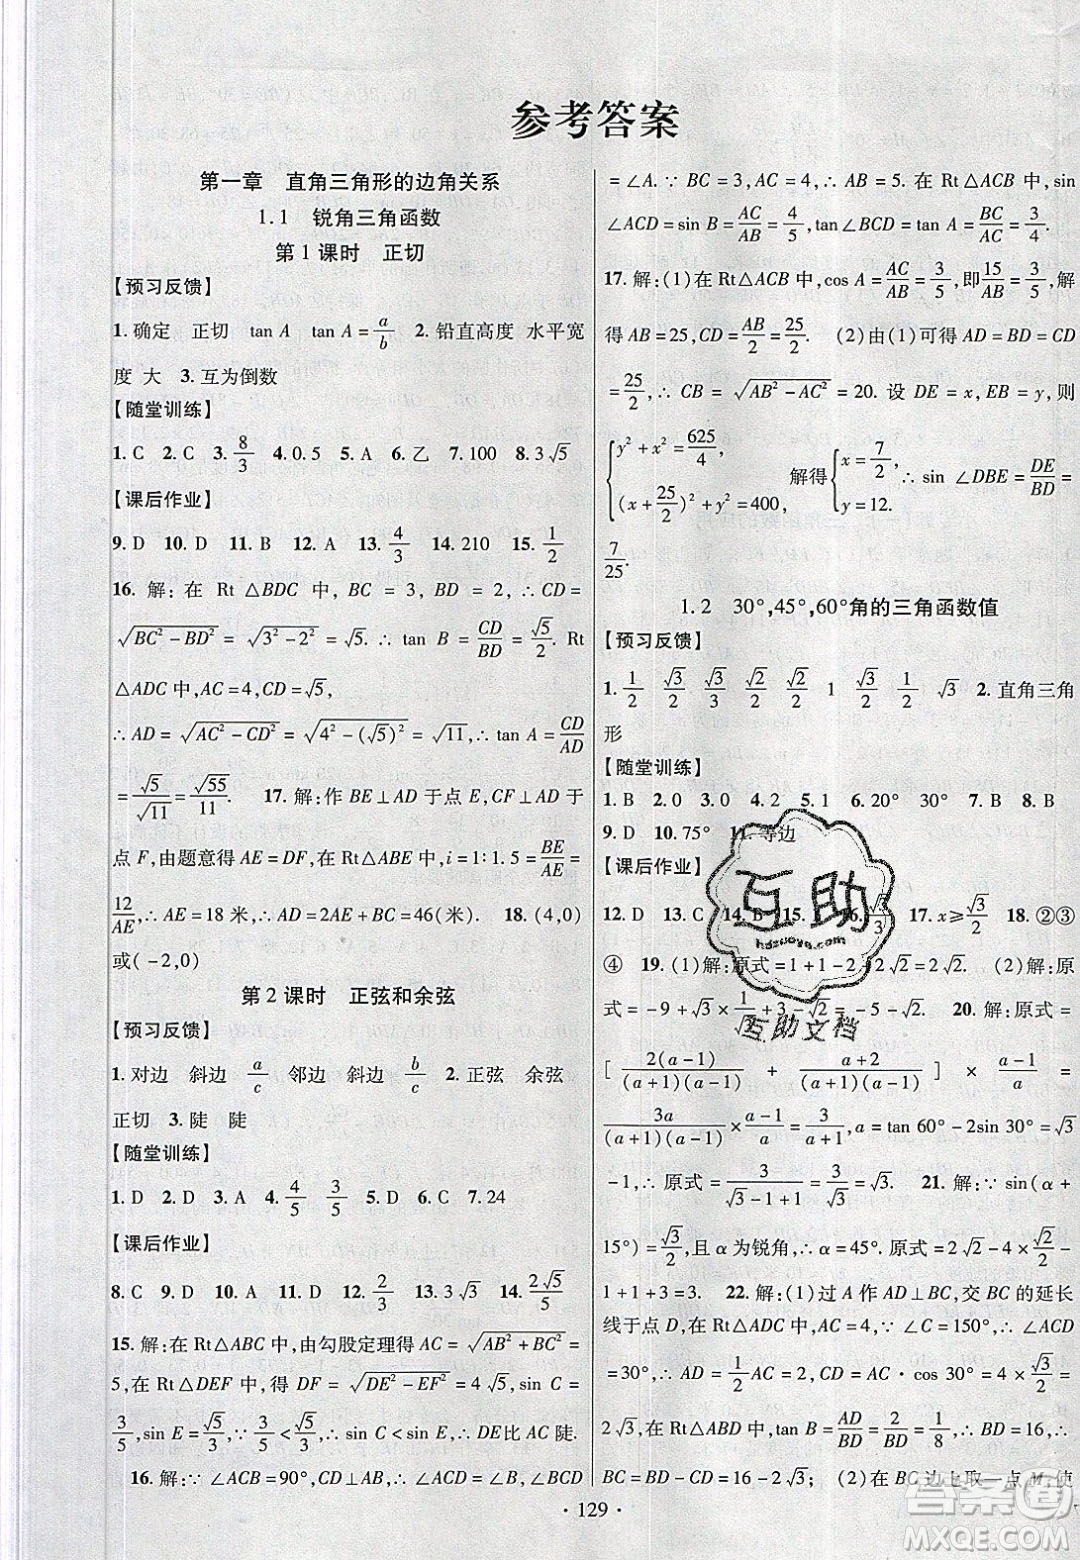 参考答案
第一章 直角三角形的边角关系
1.1 锐角三角函数
第1课时 正切
【预习反馈】
1.确定 正切 tan A tan A=a/b 2.铅直高度 水平宽
度 大 3.互为倒数
【随堂训练】
1.C 2.C 3.8/3 4.0.5 5.A 6.乙 7.100 8.3√5
【课后作业】
9.D 10.D 11.B 12.A 13.4/3 14.210 15.1/2
16.解:在 Rt△BDC 中,BC=3,BD=2,∴CD=
√(BC²-BD²)=√(3²-2²)=√5.∴tan B=CD/BD=√5/2.Rt
△ADC中,∵AC=4,CD=√5,
∴AD=√(AC²-CD²)=√(4²-(√5)²)=√11,∴tan A=CD/AD
=√5/√11=√55/11. 17.解:作BE⊥AD于点E,CF⊥AD于
点F,由题意得AE=DF,在Rt△ABE中,i=1:1.5=BE/AE=
12/AE,∴AE=18米,∴AD=2AE+BC=46(米). 18.(4,0)
或(-2,0)
第2课时 正弦和余弦
【预习反馈】
1.对边 斜边 a/c 邻边 斜边 b/c 2.正弦 余弦
正切 3.陡 陡
【随堂训练】
1.D 2.A 3.A 4.4/5 3/5 5.D 6.C 7.24
【课后作业】
8.C 9.D 10.A 11.D 12.2/3 13.3√3 14.2√5/5
15.解:在Rt△ABC中,由勾股定理得AC=√(AB²+BC²)=
5,在Rt△DEF中,同理得 DF=√(DE²-EF²)=4√5,sin C=
3/5,sin E=√5/3,∵√5/5<√5/3,∴sin C<sin E,∴DE比AC陡.
16.解:∵∠ACB=90°,CD⊥AB,∴∠ACD=∠B,∠BCD
=∠A.∵BC=3,AC=4,∴AB=5.在Rt△ACB中,sin
∠ACD=sin B=AC/AB=4/5,tan∠BCD=tan A=BC/AC=3/4.
17.解:(1)在Rt△ACB中,cos A=AC/AB=3/5,即15/AB=3/5,解
得AB=25,CD=AB/2=25/2. (2)由(1)可得AD=BD=CD=
25/2,∴CB=√(AB²-AC²)=20.设DE=x,EB=y,则
{y²+x²=625/4, (x+25/2)²+y²=400, 解得{x=7/2, y=12. ∴sin∠DBE=DE/BD=
7/25.
1.2 30°,45°,60°角的三角函数值
【预习反馈】
1.1/2 √3/2 √3/3 √2/2 √2/2 1 √3/2 1/2 √3 2.直角三角
形
【随堂训练】
1.B 2.0 3.0 4.2 5.1 6.20° 30° 7.B 8.B
9.D 10.75° 11.等边
【课后作业】
12.D 13.C 14.B 15. 16.√3/3 17.x≥√3/2 18.②③
④ 19.(1)解:原式=1+1-2+2√2=2√2. (2)解:原
式=-9+√3×1/√3+3-√3=-5-√3 20.解:原式=
[2(a-1)/(a+1)(a-1) + a+2/(a+1)(a-1)] × a-1/a =
3a/(a+1)(a-1)×a-1/a=3/(a+1),a=tan 60°-2sin 30°=√3
-1,∴原式=3/(√3-1+1)=3/√3=√3. 21.解:∵sin(α+
15°)=√3/2,且α为锐角,∴α=45°.原式=2√2-4×√2/2-
1+1+3=3. 22.解:(1)过A作AD⊥BC,交BC的延长
线于点D,在Rt△ADC中,∵AC=4,∵∠C=150°,∴∠ACD
=30°,∴AD=1/2AC=2,CD=AC·cos 30°=4×√3/2=
2√3,在Rt△ABD中,tan B=AD/BD=2/BD=1/8,∴BD=16,∴
BC=BD-CD=16-2√3; (2)在BC边上取一点M,使
·129·
互助
hdzuoye.com
互助文档
答案圈
MXQE.COM